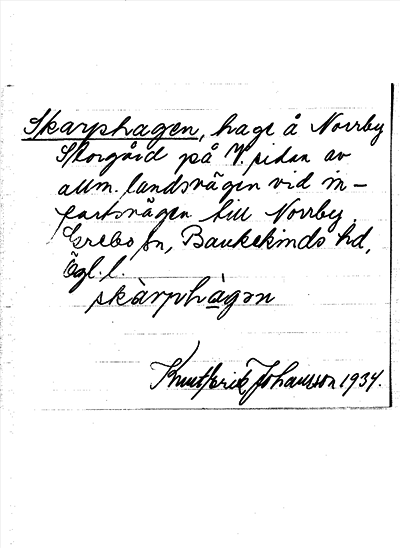 Skarphagen, hage å Norrby
Storgård på V. sidan av
allm. landsvägen vid in-
fartsvägen till Norrby.
Grebo sn, Bankekinds hd,
Ögl. l.
skàrphàgən
Knut Erik Johansson 1934.